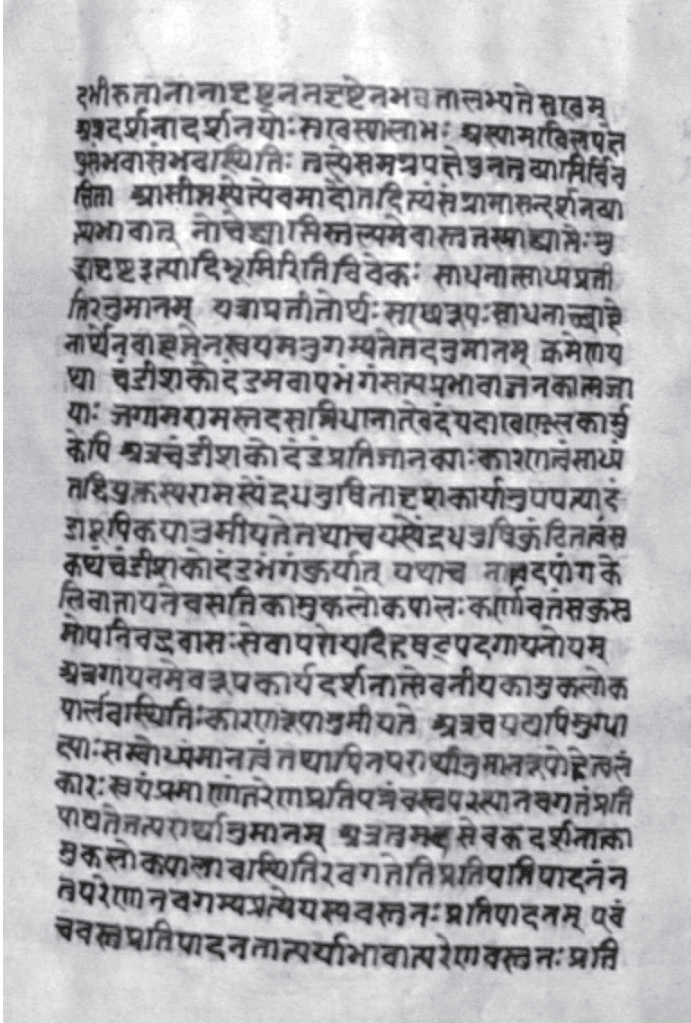 दभीरुतानानादृष्टूननदृष्टेनभवतालभ्यतेसुखम्
अत्रदर्शनादर्शनयोःसुखस्यालाभः
पुसंभवासंभवास्थितिः
सिता आसीन्नस्येत्येवमादौतदित्थं
त्यभावात् नोचेद्याप्तिस्तल्पमेवास्तुतस्माद्याप्तेःमु
द्रादृष्टइत्यादिभूमिरितिविवेकः साधनात्साध्यप्रती
तिरनुमानम् यत्राप्रतीतोर्थःसाध्यरूपःसाधनाच्चाहे
नार्थेनवाद्यमेनस्वयमनुगम्यतेतदनुमानम् क्रमेणय
था चंडीशकोदंडमवापभंगंसत्यप्रभावाज्जनकात्मजा
याः जगामरामस्तदसन्निधानातेवदंयदाखण्डलकार्मु
केपि अत्रचंडीशकोदंडंप्रतिजानक्याःकारणत्वंसाध्यं
तद्वियुक्तस्यरामस्येंद्रधनुषितादृशकार्यानुपपत्यादं
डाऽपूपिकयानुमीयतेतथाचयस्येंद्रधनुषिकुंठितत्वंस
कथंचंडीशकोदंडभंगंकुर्यात् यथाच नालदपांगके
लिवातायतेवसतिकामुकलोकपालःकर्णावतंसकुस
मोपनिबद्धवासःसेवापरोयदिहषट्पदगायनोयम्
अत्रगायनमेवरूपकार्यदर्शनात्सेवनीयकामुकलोक
पालवास्थितिःकारणरूपानुमीयते अत्रचयद्यपिमुग्धा
त्याःसम्बोध्यमानत्वंतथापिनपरार्थानुमानरूपोहेत्वलं
कारःस्वयंप्रमाणांतरेणप्रतिपन्नंवस्तुपरस्यानवगतंप्रति
पाद्यतेतत्परार्थानुमानम् सेवकदर्शनात्का
मुकलोकपालावास्थितिरवगतेतिप्रतिपतिपादनंन
तेपरेणानवगम्यप्रत्येयस्यवस्तुनःप्रतिपादनम् एवं
चवस्तुप्रतिपादनतात्पर्याभावात्परेणवस्तुनःप्रति